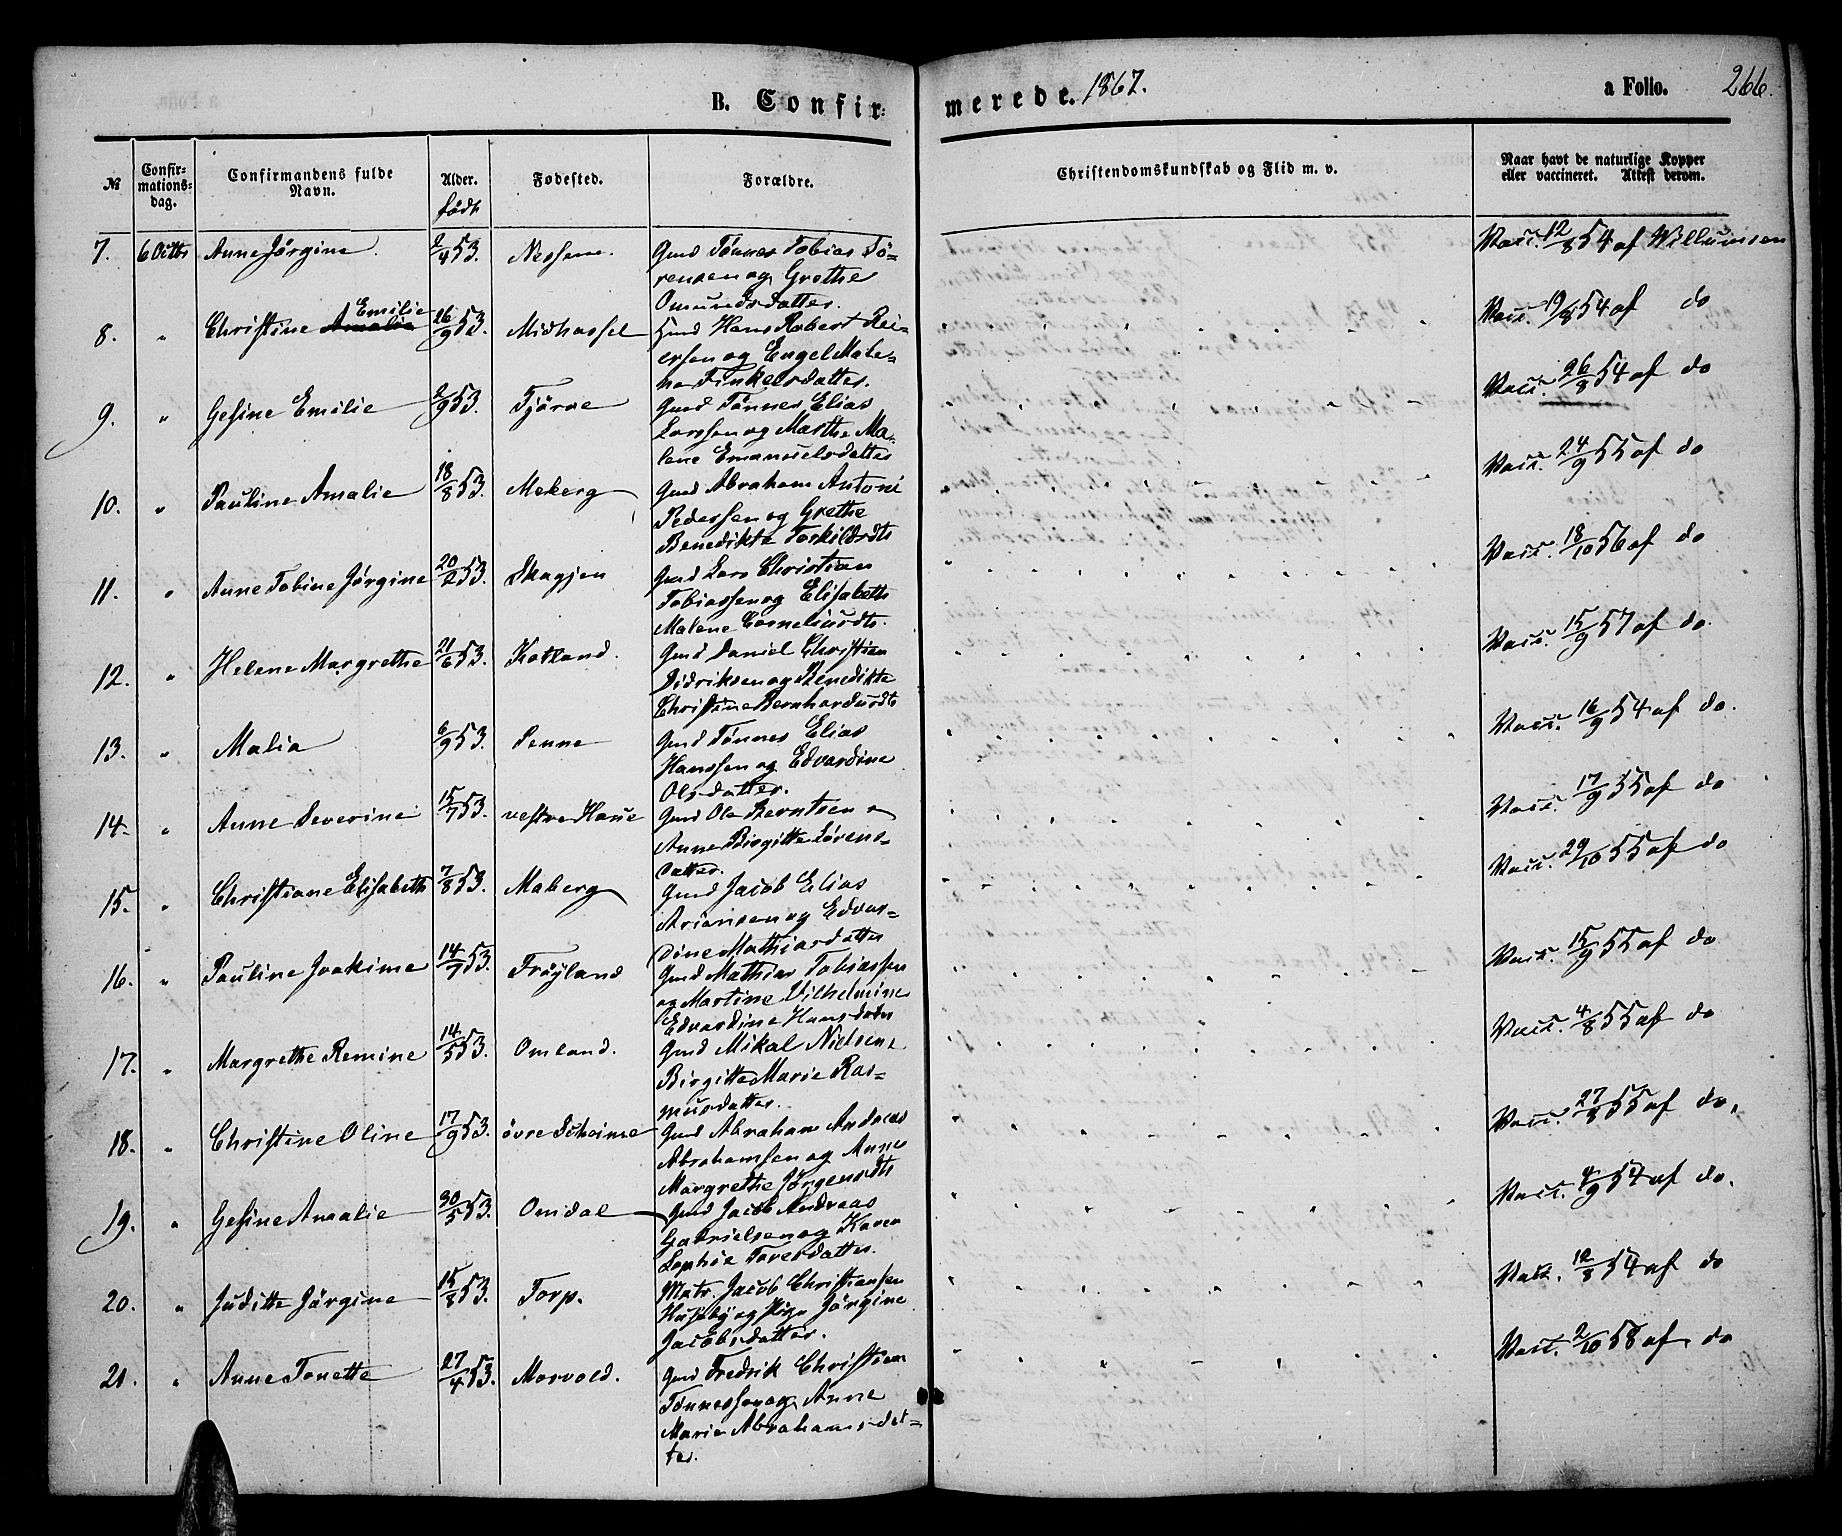 B. Confir-
merede. 1867.
a Folio. 266.
№
Confir-
mations-
dag.
Confirmandens fulde
Navn.
Alder.
født
Fødested.
Forældre.
Christendomskundskab og Flid m. v.
Naar havt de naturlige Kopper
eller vaccineret. Attest derom.
7. 6 Octbr Anne Jørgine. 2/4 53. Nessene Gmd Tönnes Tobias Sö-
rensen og Grethe
Omundsdatter.
Vacc. 12/8 54 af Willumsen
8. " Christine Amalie Emilie 26/9 53. Midhassel Gmd Hans Robert Rei-
ersen og Engel Male-
ne Tinkelsdatter.
Vacc. 19/8 54 af do
9. " Gesine Emilie 2/9 53. Tjörve Gmd Tönnes Elias
Larssen og Marthe Ma-
lene Emanuelsdatter
Vacc. 26/8 54 af do
10. " Pauline Amalie 18/8 53. Meberg Gmd Abraham Antoni
Pedersen og Grethe
Benedikte Torkildsdtr
Vacc. 24/9 55 af do
11. " Anne Tobine Jørgine 20/2 53. Skagjen Gmd Lars Christian
Tobiassen og Elisabeth
Malene Corneliusdtr.
Vacc. 18/10 56 af do
12. " Helene Margrethe 21/6 53. Kotland. Gmd Daniel Christian
Didriksen og Benedikte
Christine Bernhardusdtr
Vacc. 15/9 57 af do.
13. " Malia 6/9 53. Penne Gmd Tönnes Elias
Hanssen og Edvardine
Olsdatter.
Vacc. 16/9 54 af do.
14. " Anne Severine 15/7 53. vestre Haue Gmd Ole Berntsen o
Anne Birgitte Sörens-
datter.
Vacc. 17/9 55 af do
15. " Christiane Elisabeth 7/8 53. Maberg Gmd Jacob Elias
Ariansen og Edvar-
dine Mathiasdatter
Vacc. 29/10 55 af do
16. " Pauline Joakime 14/7 53. Fröyland Gmd Mathias Tobiassen
og Martine Vilhelmine
Edvardine Hansdatr
Vacc. 15/9 55 af do
17. " Margrethe Remine 14/5 53. Omland. Gmd Mikal Nielsen o
Birgitte Marie Ras-
musdatter.
Vacc. 4/8 55 af do
18. " Christine Oline 17/9 53. övre Skeime Gmd Abraham Andreas
Abrahamsen og Anne
Margrethe Jørgensdtr
Vacc. 27/8 55 af do.
19. " Gesine Amalie 30/5 53. Omdal Gmd Jacob Andreas
Gabrielsen og Karen
Sophie Toresdatter.
Vacc. 4/9 54 af do.
20. " Juditte Jörgine 15/8 53. Torp. Matr. Jacob Christiansen
Huseby og Pige Jörgine
Jacobsdatter.
Vacc. 12/8 54 af do
21. " Anne Tonette 27/4 53. Morvold. Gmd Fredrik Christian
Tönnessen og Anne
Marie Abrahamsdat-
ter.
Vacc. 2/10 58 af do